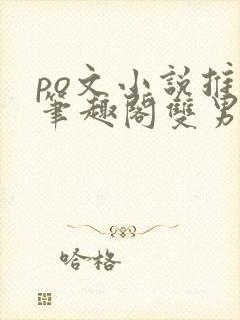 po文小说推
筆趣閣雙男
哈格